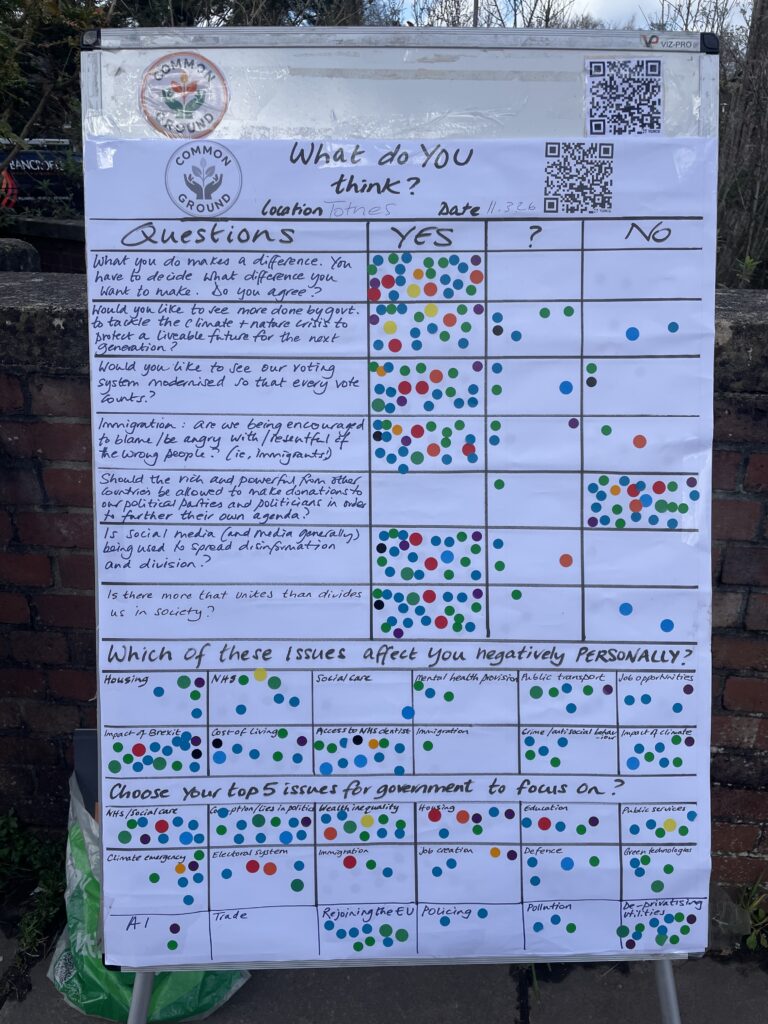 VP VIZ-PRO
COMMON
GROUND
COMMON
GROUND
What do YOU
think?
Location Totnes Date 11.3.26
BANCROF
Questions YES ? NO
What you do makes a difference. You
have to decide what difference you
want to make. Do you agree?
Would you like to see more done by govt.
to tackle the climate + nature crisis to
protect a liveable future for the next
generation?
Would you like to see our voting
system modernised so that every vote
counts?
Immigration: are we being encouraged
to blame/be angry with/resentful of
the wrong people? (ie, immigrants)
Should the rich and powerful from other
countries be allowed to make donations to
our political parties and politicians in order
to further their own agenda?
Is social media (and media generally)
being used to spread disinformation
and division?
Is there more that unites than divides
us in society?
Which of these issues affect you negatively PERSONALLY?
Housing NHS Social care Mental health provision Public transport Job opportunities
Impact of Brexit Cost of Living Access to NHS dentist Immigration Crime/antisocial behav-
iour Impact of climate
Choose your top 5 issues for government to focus on?
NHS/Social care Corruption/lies in politics Wealth inequality Housing Education Public services
Climate emergency Electoral system Immigration Job creation Defence Green technologies
AI Trade Rejoining the EU Policing Pollution De-privatising
utilities